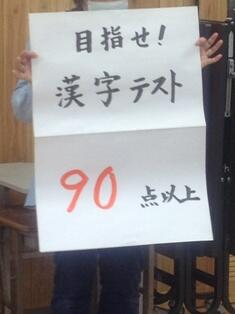 目指せ!
漢字テスト
90 点以上